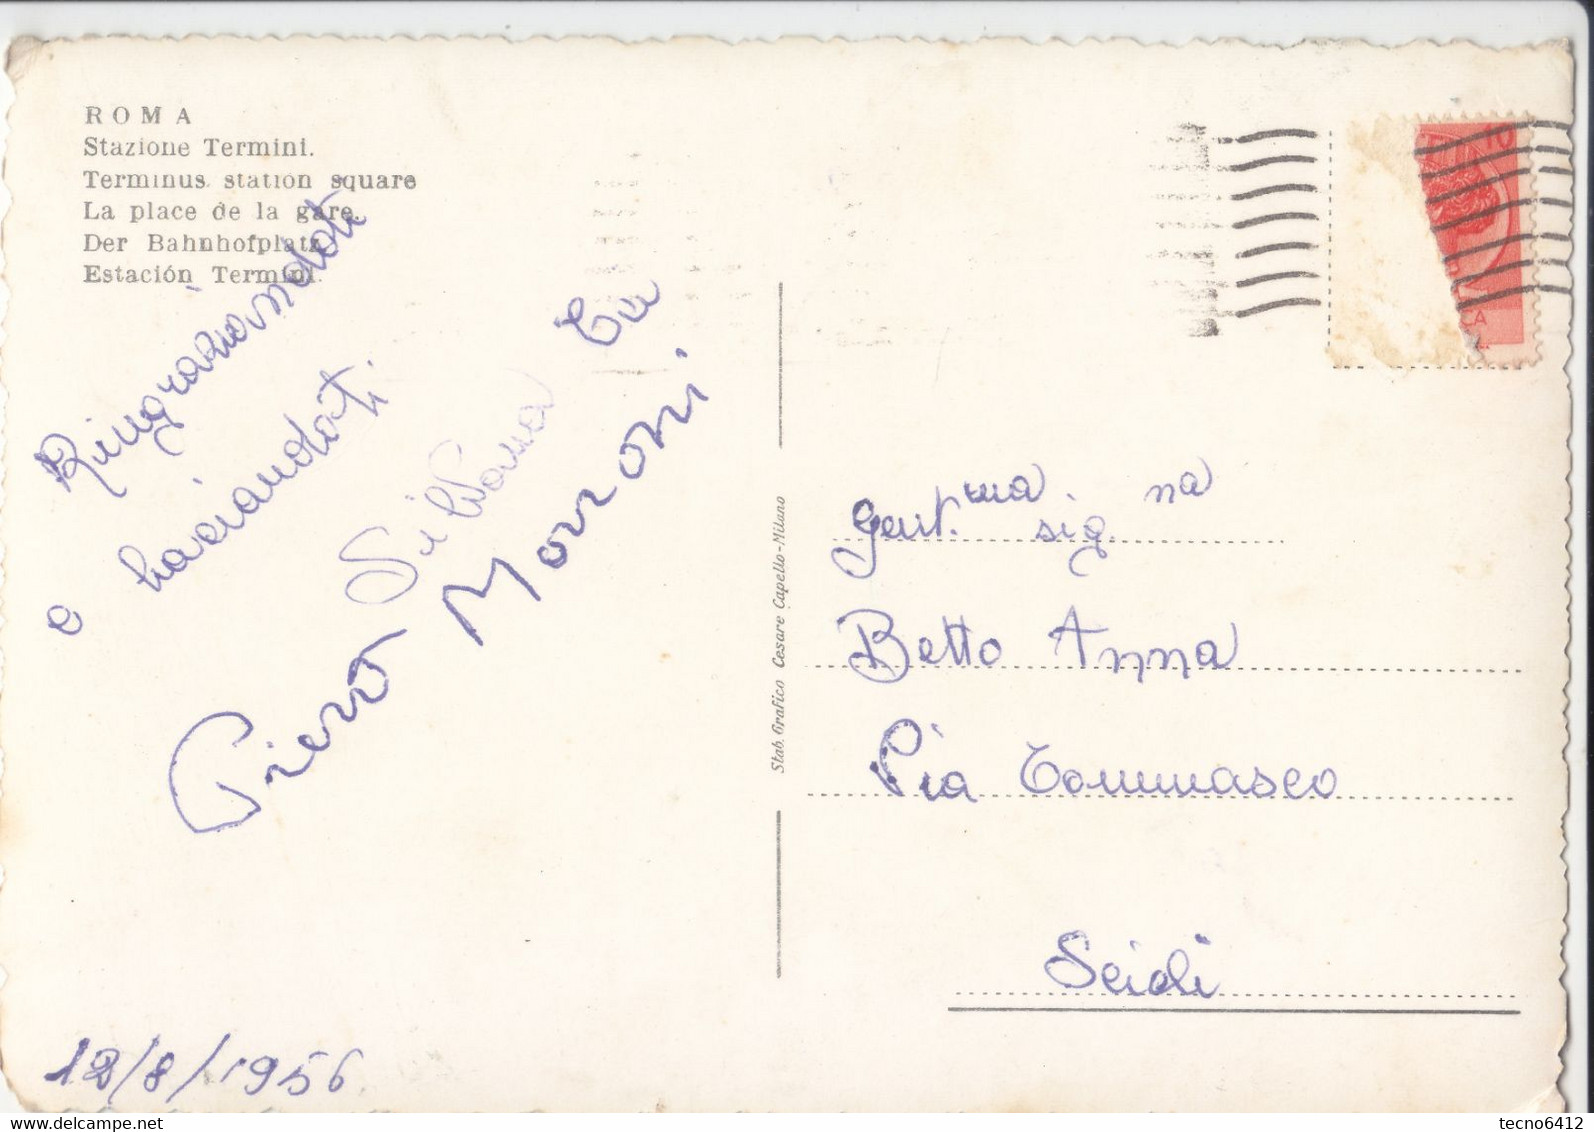 ROMA
Stazione Termini.
Terminus station square
La place de la gare.
Der Bahnhofplatz
Estación Termini.
Ringraziandoti
e baciandoti
Silvana
Piero Morroni
12/8/1956
Stab. Grafico Cesare Capello-Milano
10
CA
Gent.ma sig.na
Betto Anna
Via Tommaseo
tecno6412